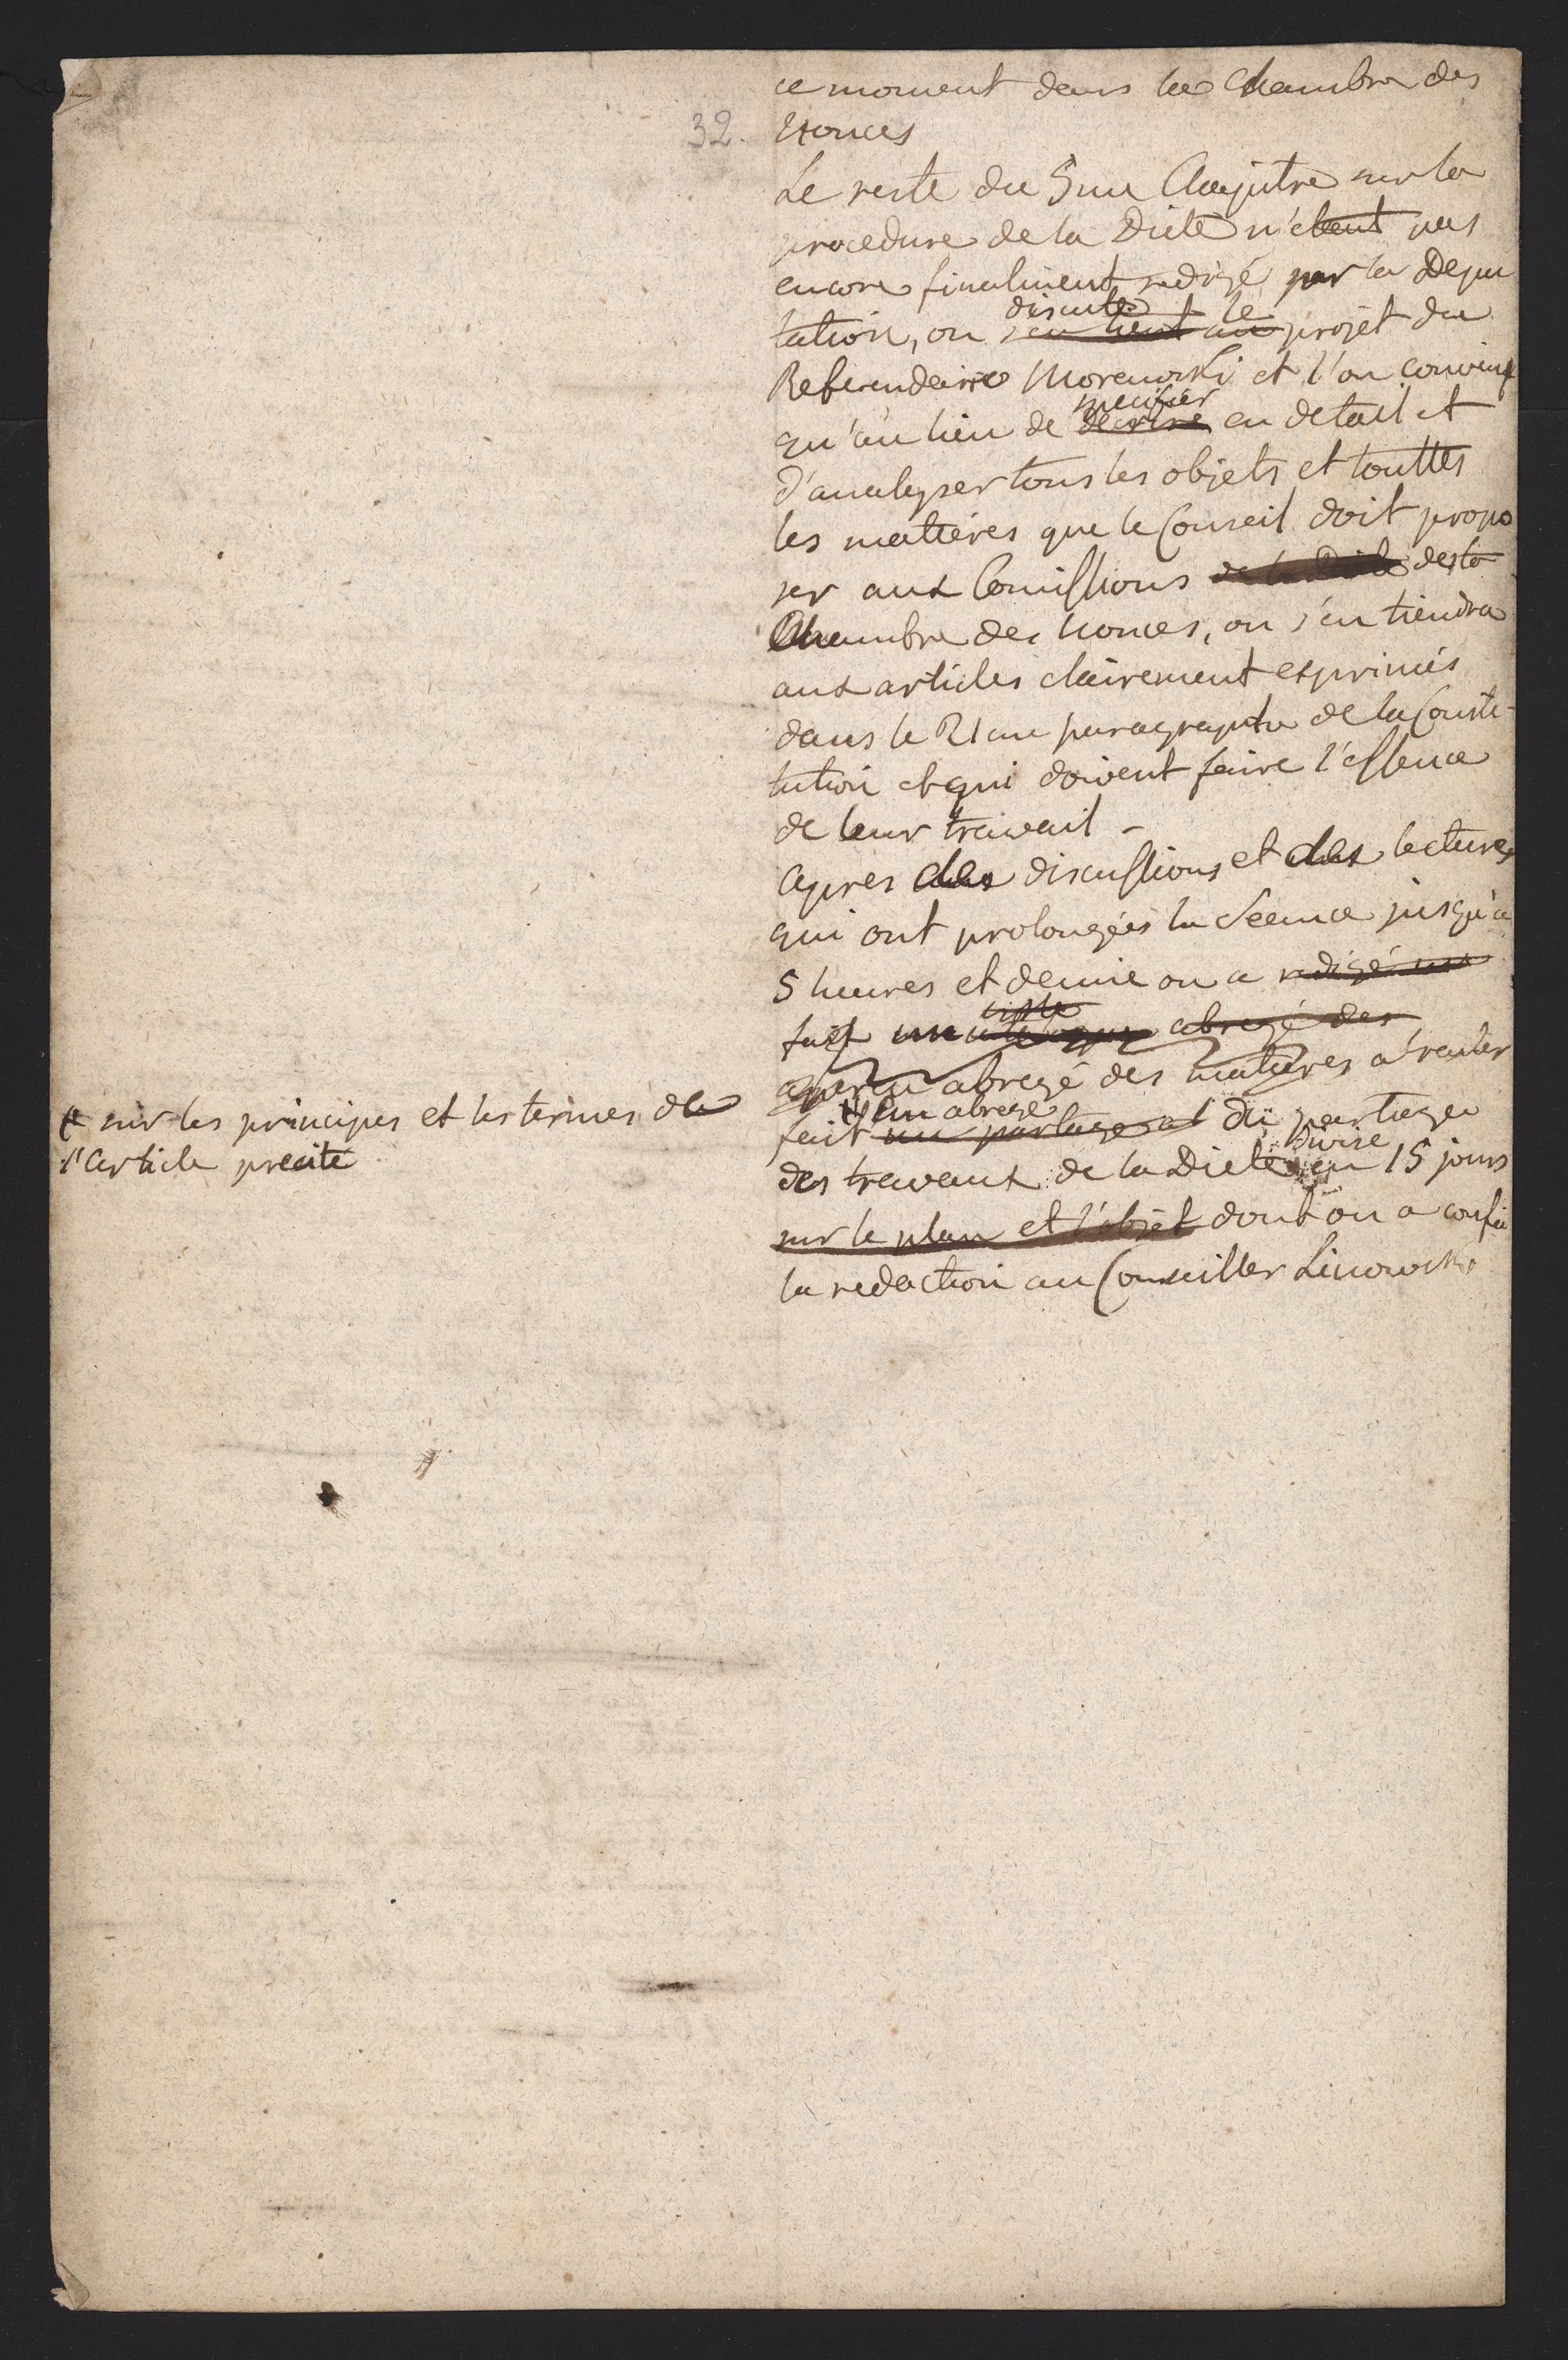 ce moment dans la Chambre des
32. Nonces
Le reste du 5me Chapitre sur la
procedure de la Diete n'etant pas
encore finalment redigé par la Depu
tation, on s'en tient au projet du
discute le
Referendaire Morawski et l'on convint
qu'au lieu de decrire en detail et
specifier
d'analyser tous les objets et touttes
les matières que le Conseil doit propo
ser aux Comissions de la Diete de la
Chambre des Nonces, on s'en tiendra
aux articles clairement exprimés
dans le 21me paragraphe de la Consti-
tution et qui doivent faire l'essence
de leur travail -
Apres des discussions et des lectures
qui ont prolongées la Seance jusqu'a
5 heures et demie on a redigé un
liste
fait un abregé des
aperçu abregé des matieres a traiter
# un abregé
fait un partage et du partage
des travaux de la Diete en 15 jours
Divisé
sur le plan et l'objet dont on a confié
la redaction au Conseiller Linowski
# sur les principes et les termes de
l'article precité